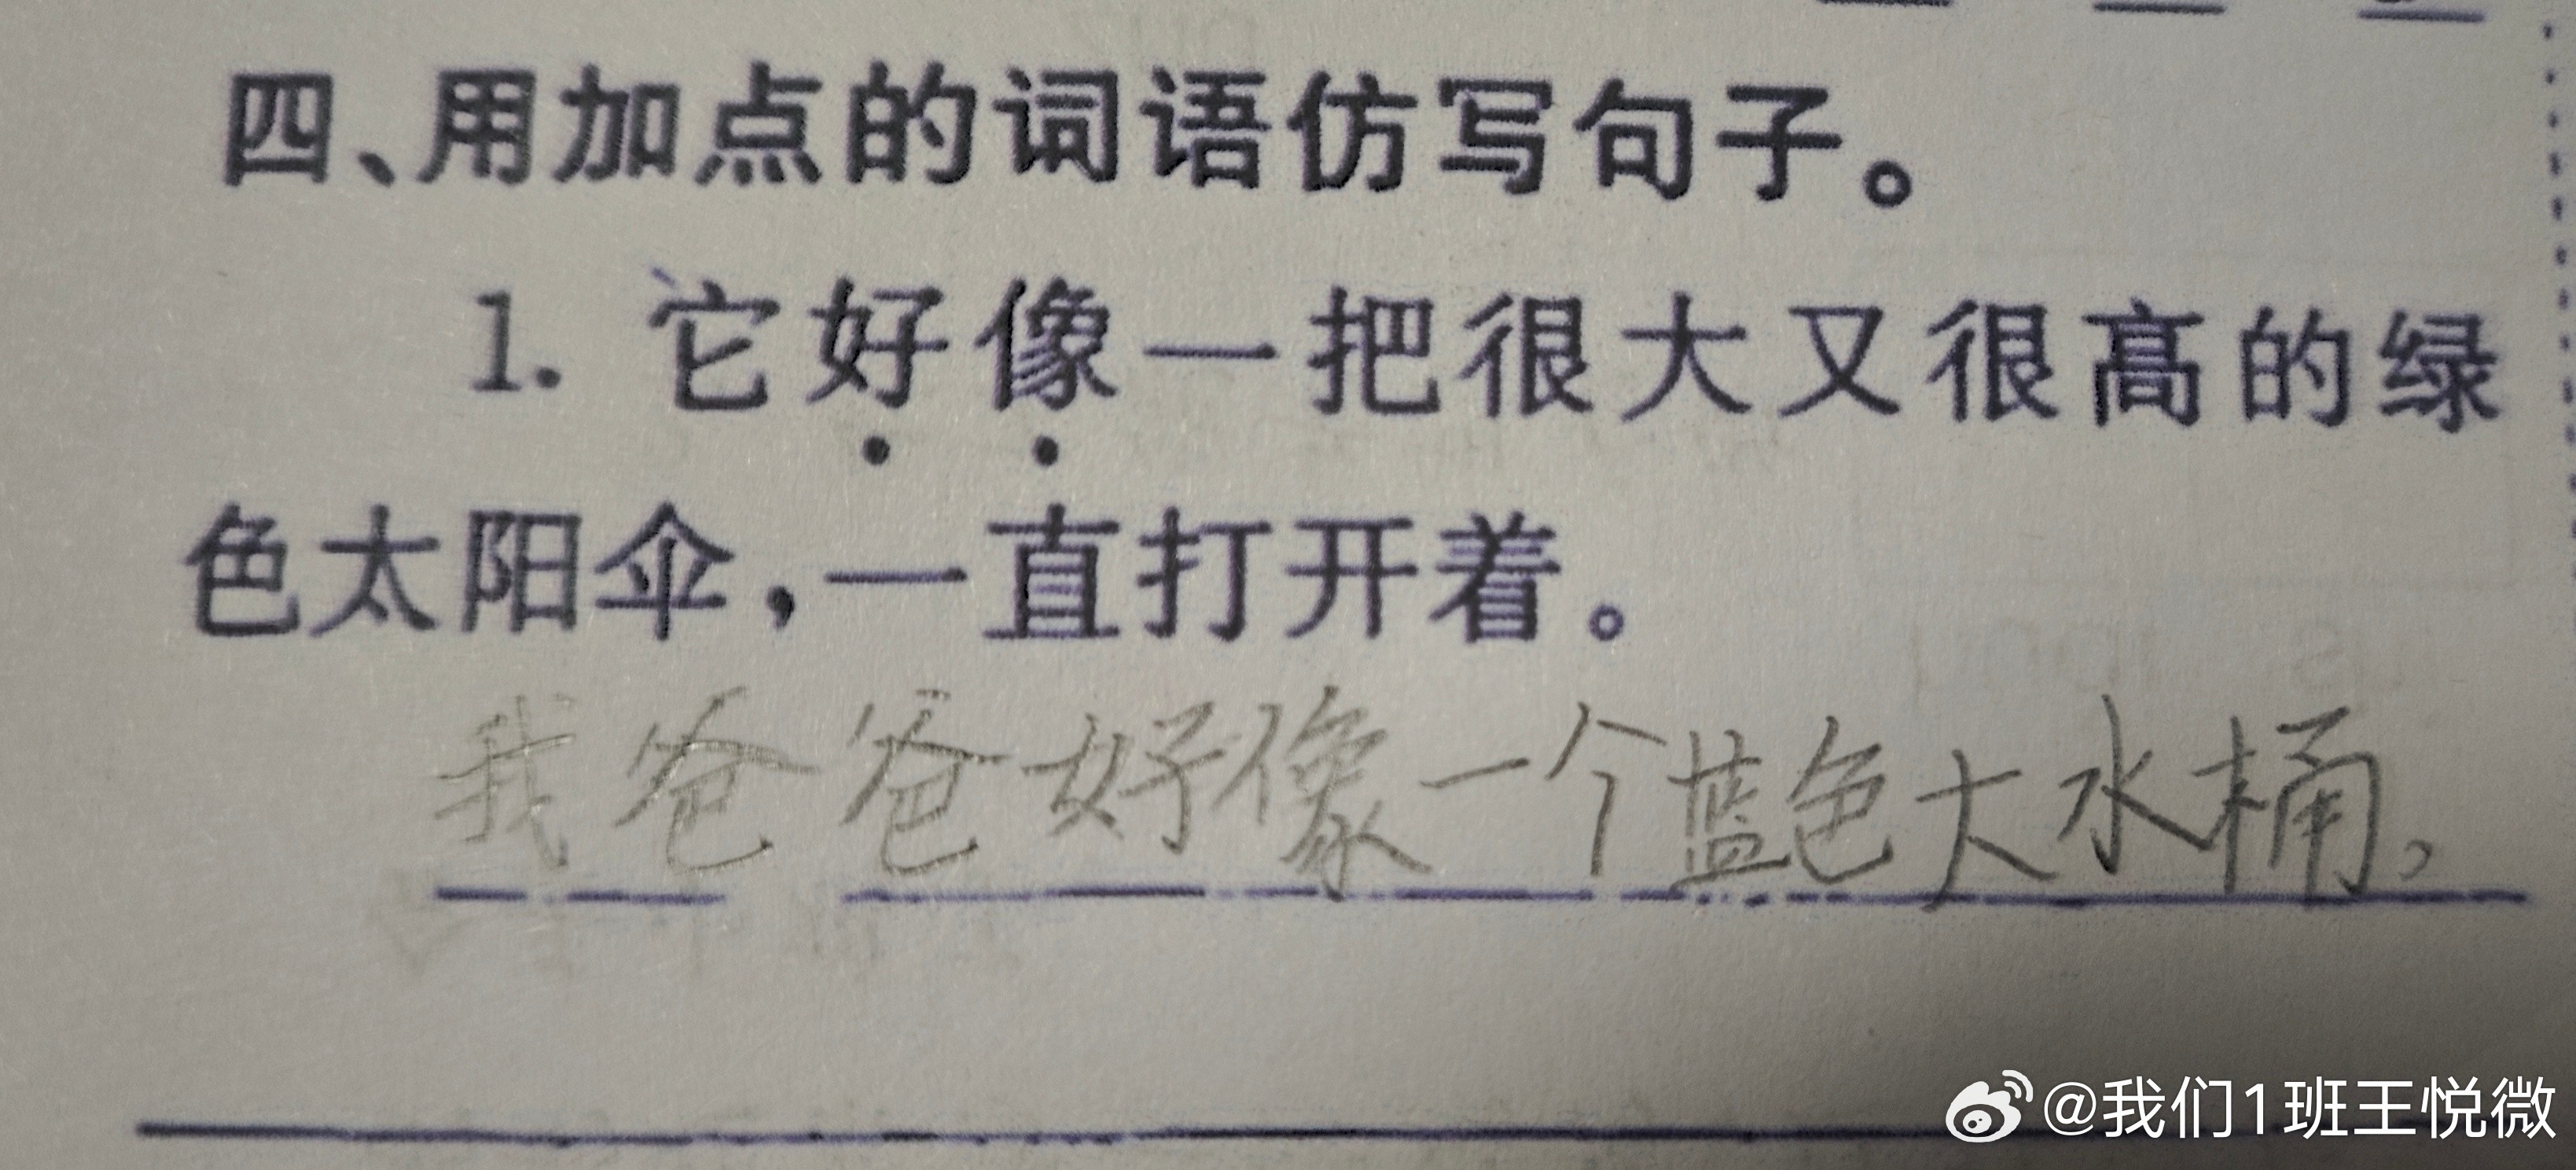 四、用加点的词语仿写句子。
1. 它好像一把很大又很高的绿
色太阳伞，一直打开着。
我爸爸好像一个蓝色大水桶。
@我们1班王悦微